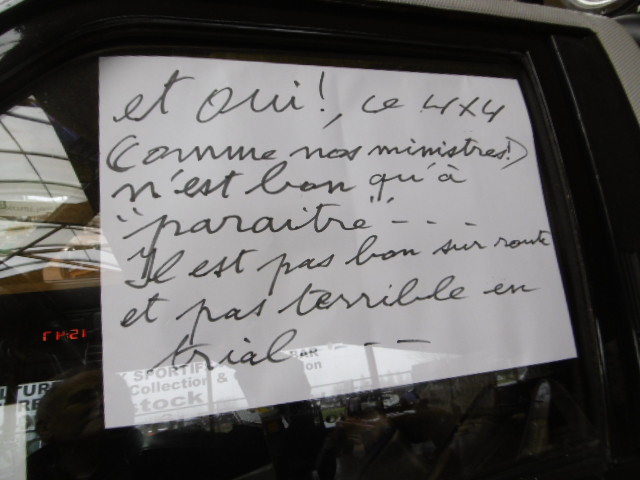 et oui!, ce 4x4
(comme nos ministres!)
n'est bon qu'à
"paraitre" - - -
Il est pas bon sur route
et pas terrible en
trial - - -
SPORTIF
BAR
Collection &
Stock